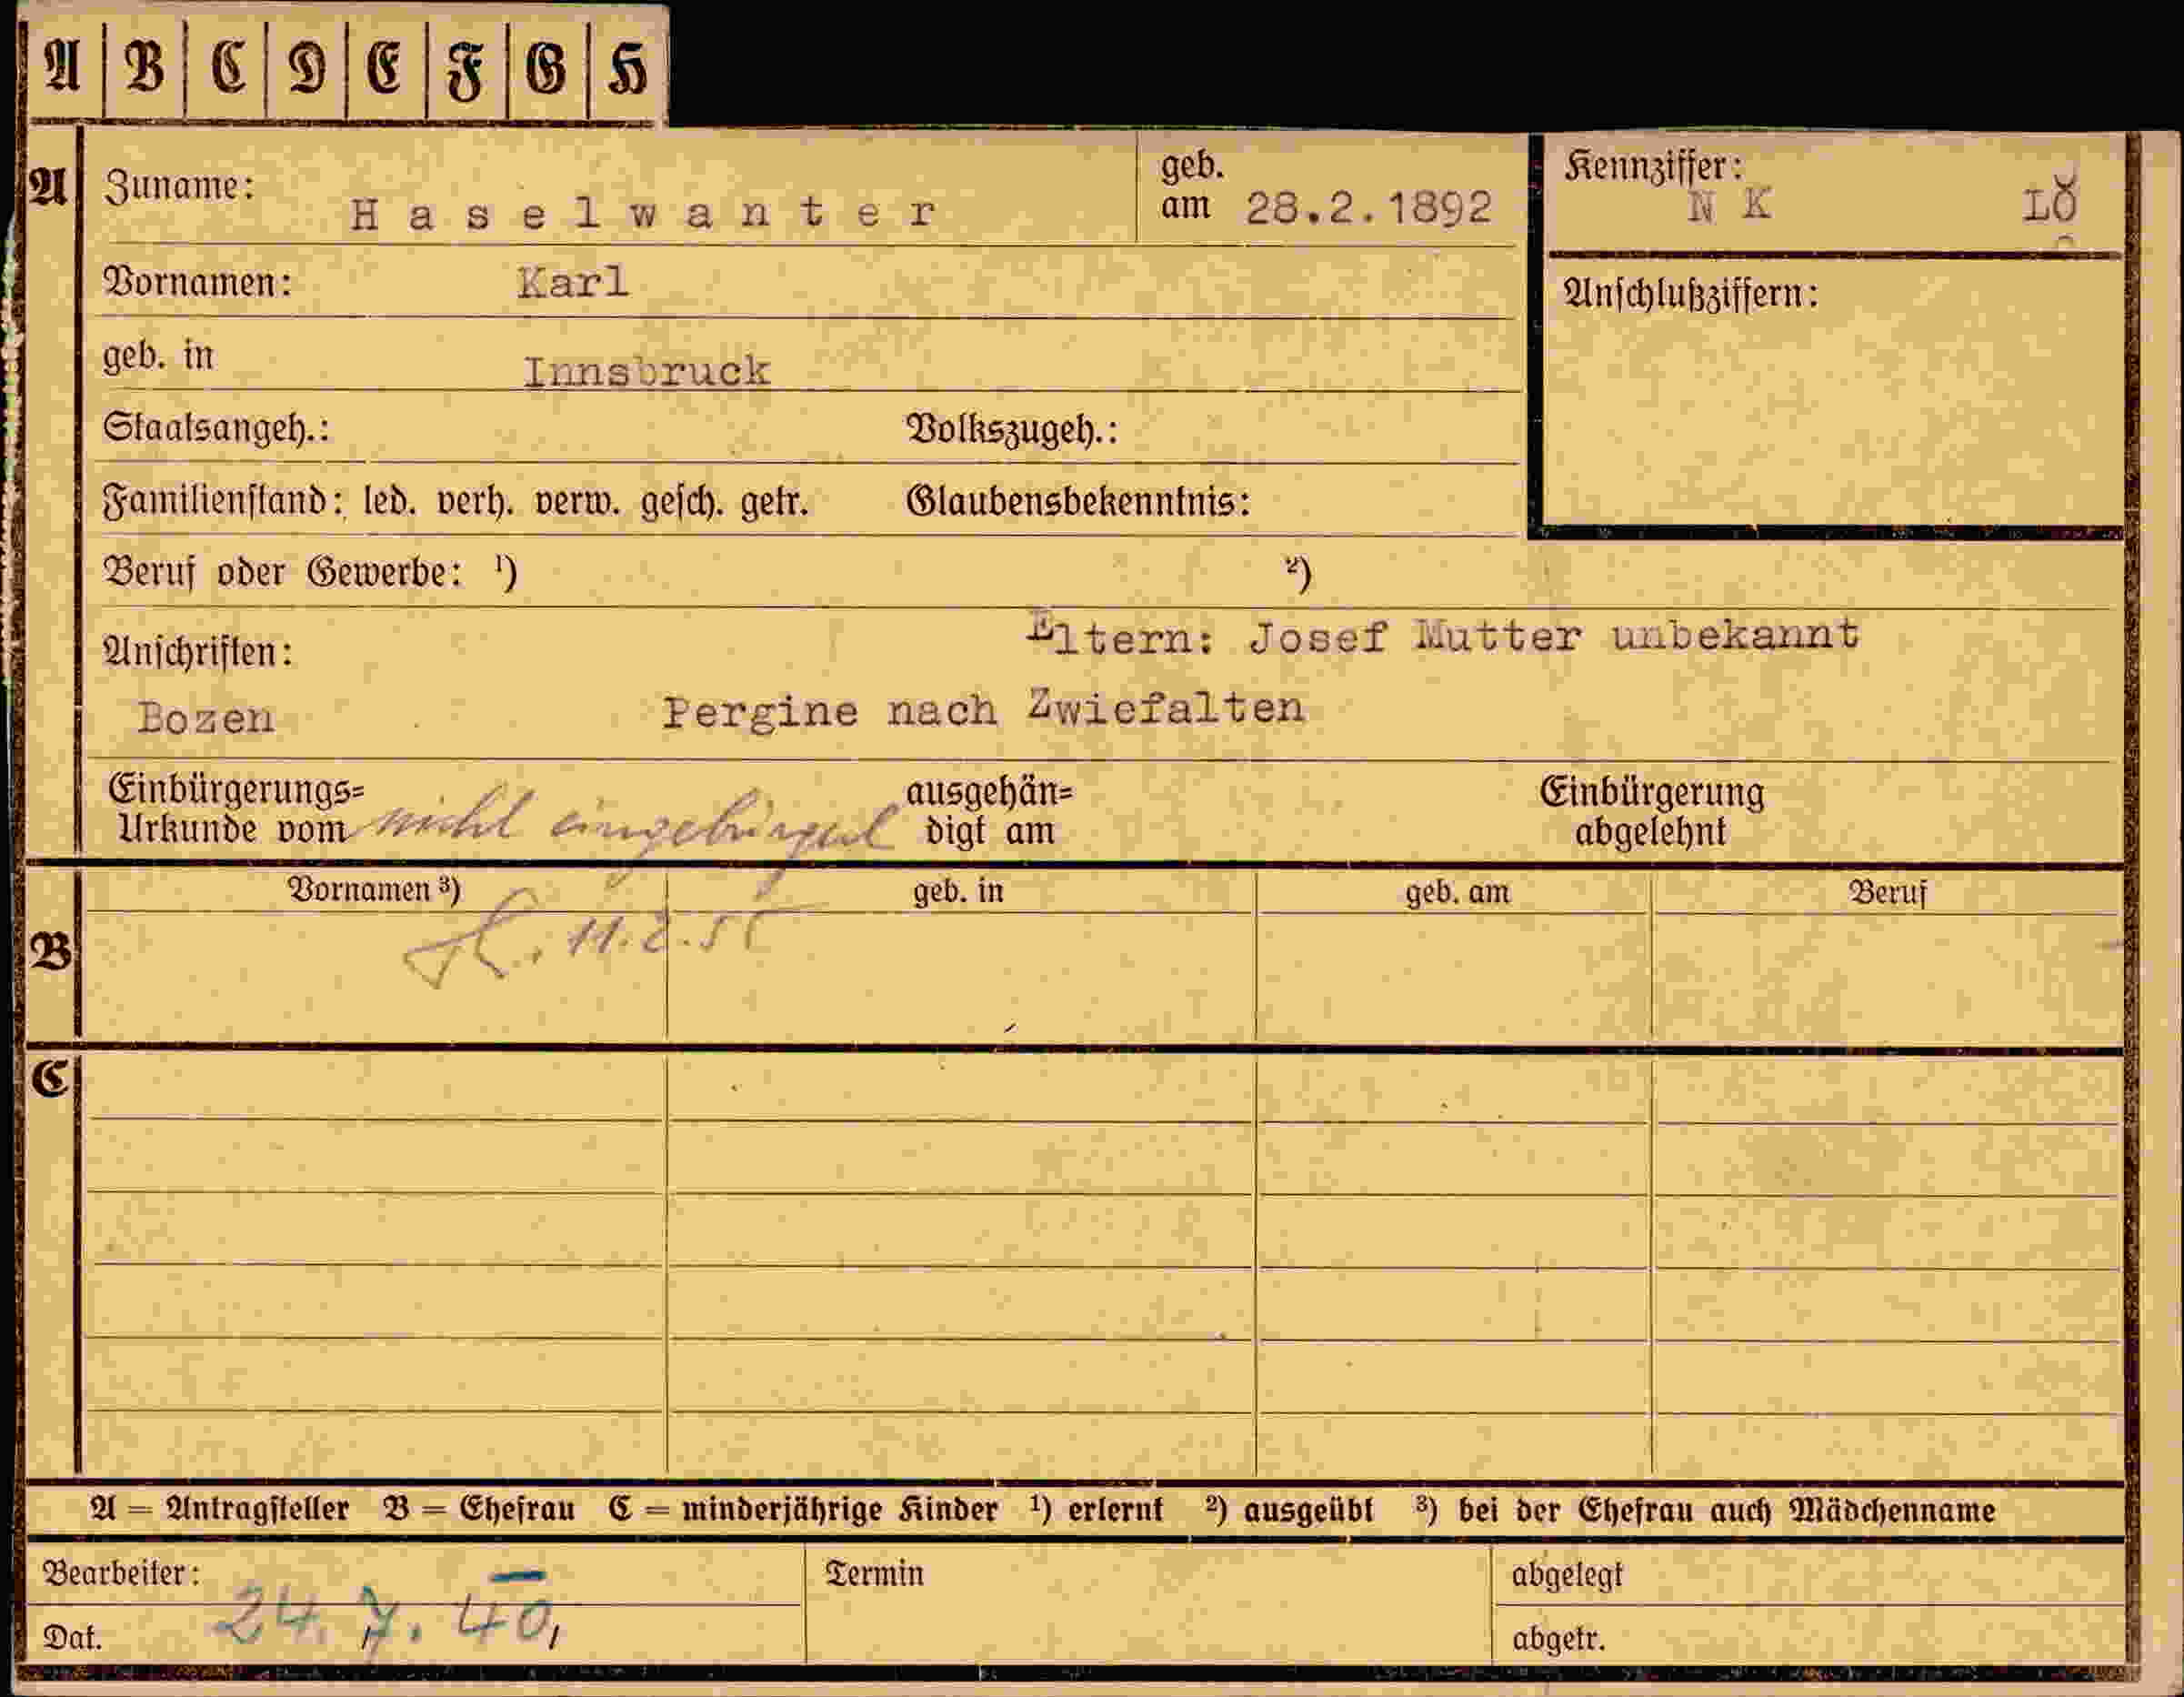 A B C D E F G H
A Zuname: Haselwanter geb. am 28.2.1892 Kennziffer: N K LÖ
Vornamen: Karl Anschlußziffern:
geb. in Innsbruck
Staatsangeh.: Volkszugeh.:
Familienstand: led. verh. verw. gesch. getr. Glaubensbekenntnis:
Beruf oder Gewerbe: ¹) ²)
Anschriften: Eltern: Josef Mutter unbekannt
Bozen Pergine nach Zwiefalten
Einbürgerungs= ausgehän= Einbürgerung
Urkunde vom nicht eingebürgert digt am abgelehnt
B Vornamen ³) geb. in geb. am Beruf
11.2.55
C
A = Antragsteller B = Ehefrau C = minderjährige Kinder ¹) erlernt ²) ausgeübt ³) bei der Ehefrau auch Mädchenname
Bearbeiter: Termin abgelegt
Dat. 24.7.40, abgetr.